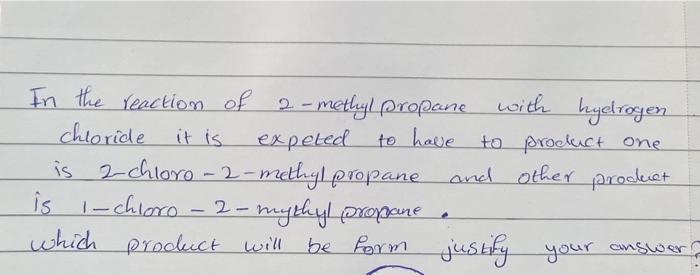 In the reaction of 2-methyl propane with hydrogen
chloride it is expeted to have to product one
is 2-chloro-2-methyl propane and other product
is 1-chloro-2-mythyl propane.
which product will be form justify your answer?